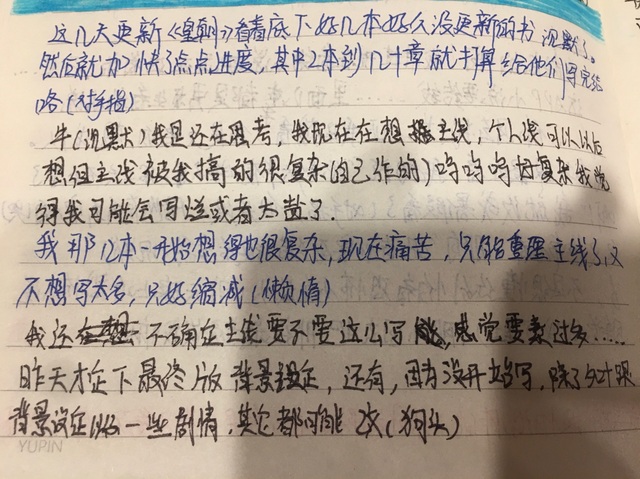 这几天更新《皇朝》看着底下好几本好久没更新的书沉默了。
然后就加快了点点进度,其中2本到几十章就打算给他们写完结
咯(对手指)
牛(沉默)我是还在思考,我现在在想主线,个人线可以以后
想但主线被我搞的很复杂(自己作的)呜呜呜好复杂我觉
得我可能会写送或者太盐了.
我那几本一开始想得也很复杂,现在痛苦,只能重理主线了,又
不想写太多,只好缩减(懒惰)
我还不确定主线要不要这么写,感觉要素过多.....
昨天才定下最终版背景设定,还有,因为没开始写,除了
背景设定以及一些剧情,其它都可能改(狗头)
YUPIN